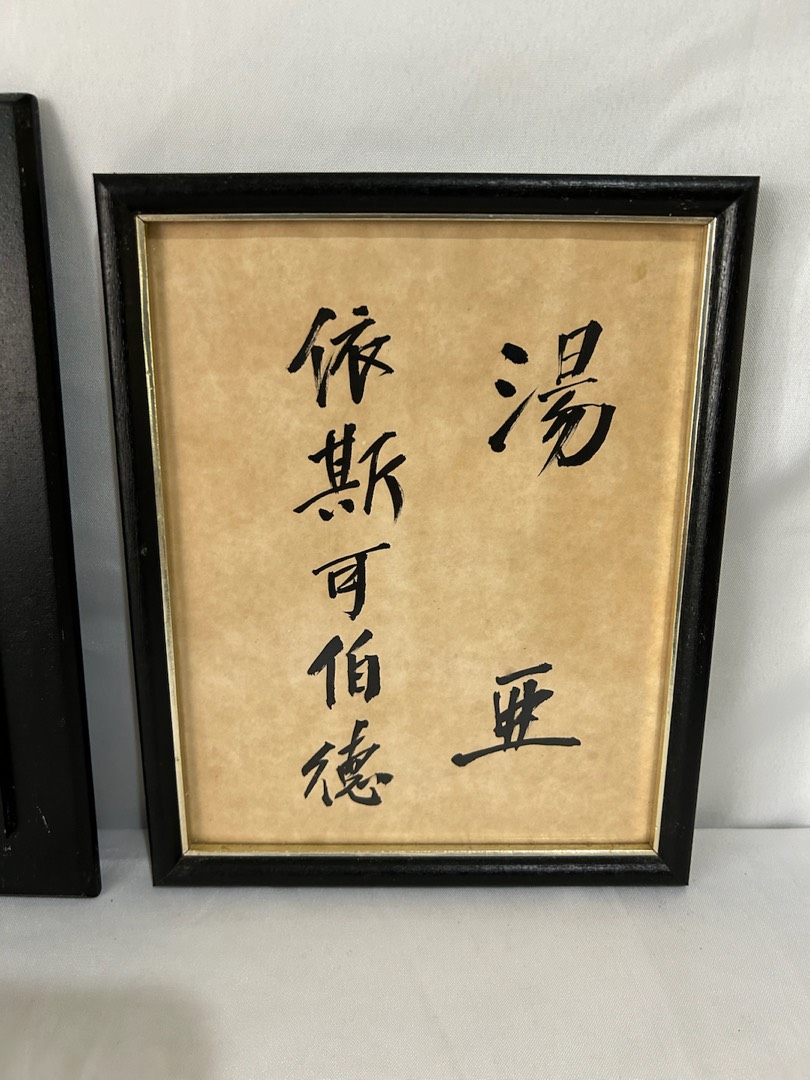 湯亞
依斯可伯德